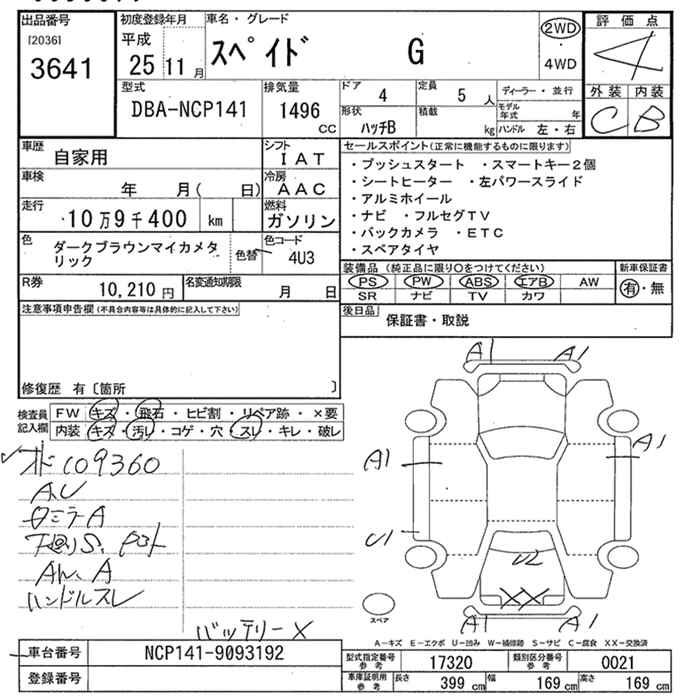 出品番号
[2036]
3641
初度登録年月
平成
25 11 月
車名・グレード
スペイド G
2WD
・
4WD
評価点
4
外装 内装
C B
型式
DBA-NCP141
排気量
1496 cc
ドア 4
定員 5 人
形状 ハッチB
積載 kg
ディーラー・並行
モデル年式 年
ハンドル 左・右
車歴
自家用
シフト
IAT
車検
年 月( 日)
冷房
AAC
走行
10万9千400 km
燃料
ガソリン
色
ダークブラウンマイカメタリック
色替
色コード
4U3
R券
10,210 円
名変通知期限
月 日
セールスポイント(正常に機能するものに限ります)
・プッシュスタート ・スマートキー2個
・シートヒーター ・左パワースライド
・アルミホイール
・ナビ ・フルセグTV
・バックカメラ ・ETC
・スペアタイヤ
装備品 (純正品に限り○をつけてください)
PS PW ABS エアB AW
SR ナビ TV カワ
新車保証書
有・無
後日品
保証書・取説
注意事項申告欄(不具合内容等は具体的に記入して下さい)
修復歴 有〔箇所 〕
検査員
記入欄
FW キズ・飛石・ヒビ割・リペア跡・×要
内装 キズ・汚れ・コゲ・穴・スレ・キレ・破レ
オド 109360
ハンドルスレ
バッテリー×
A1 A1
A1
A1
U1
U2
XX
A1 A1
スペア
A−キズ E−エクボ U−凹み W−補修跡 S−サビ C−腐食 XX−交換済
車台番号
NCP141-9093192
登録番号
型式指定番号
参考
17320
類別区分番号
参考
0021
車庫証明用
参考
長さ 399 cm
幅 169 cm
高さ 169 cm